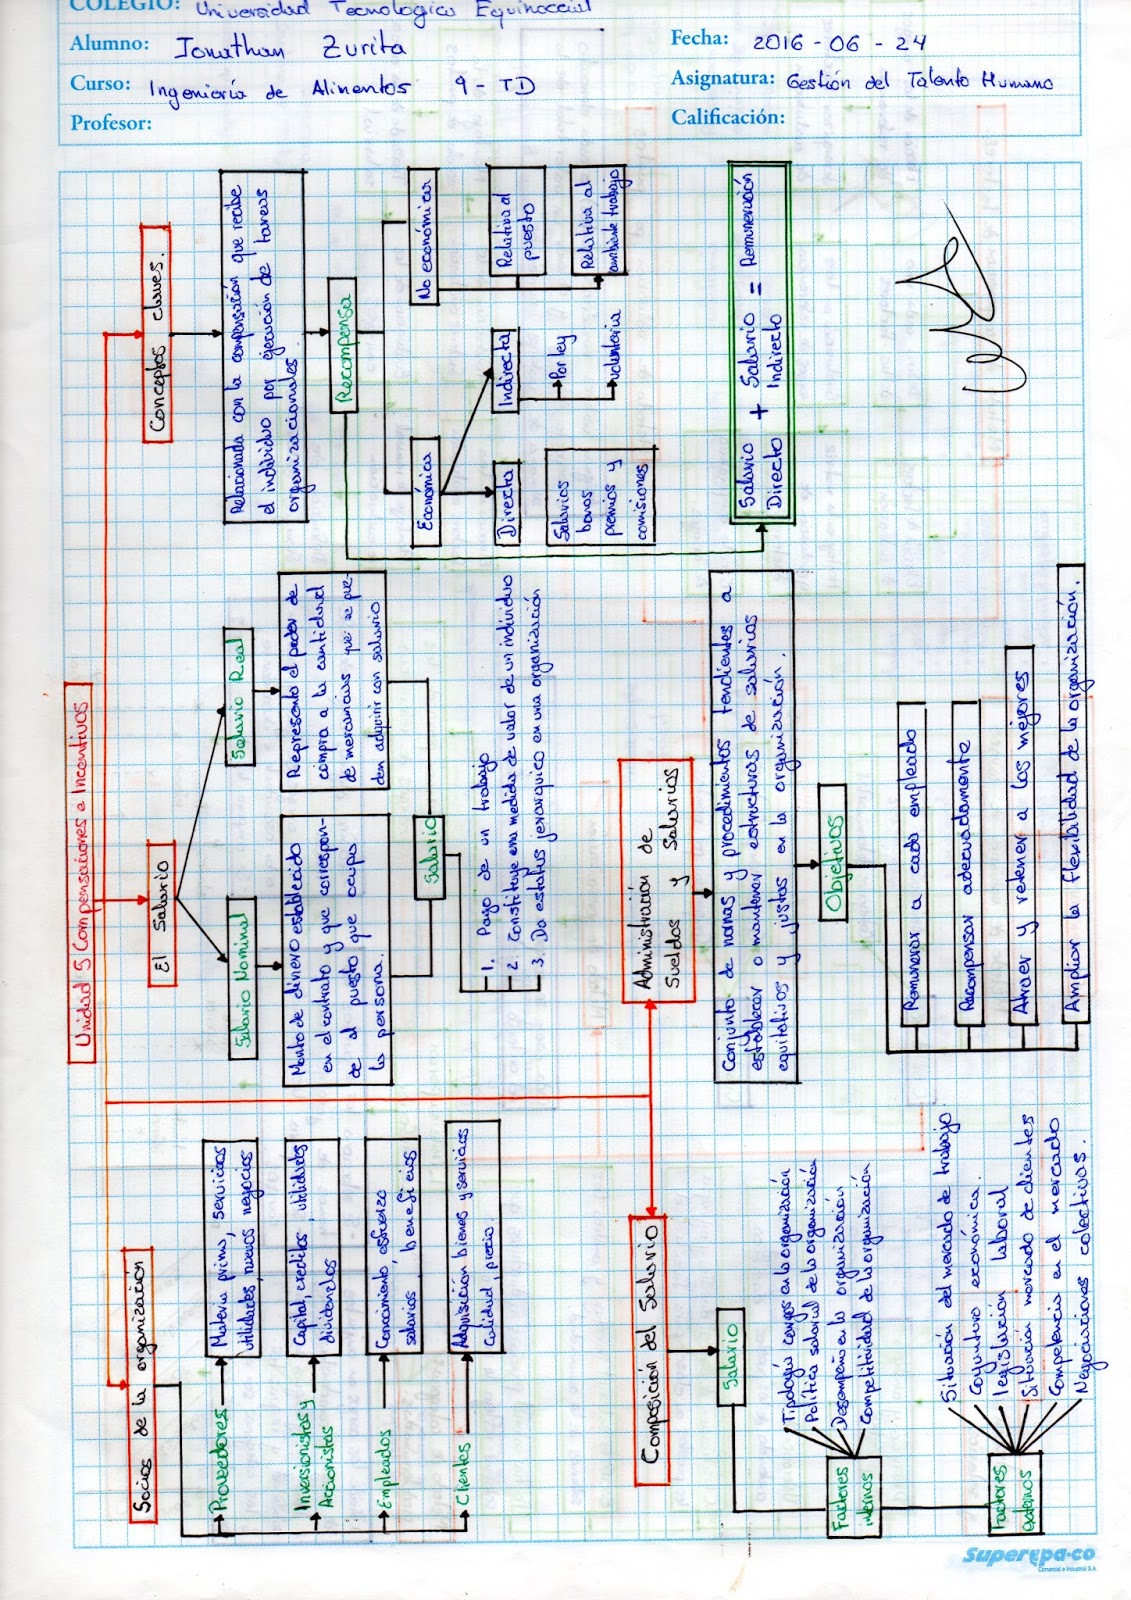 COLEGIO: Universidad Tecnologica Equinoccial
Alumno: Jonathan Zurita
Fecha: 2016 - 06 - 24
Curso: Ingeniería de Alimentos 9 - TD
Asignatura: Gestión del Talento Humano
Profesor:
Calificación:
Unidad 5 Compensaciones e Incentivos
Socios de la organización
Proveedores
Materia prima, servicios
utilidades, nuevos negocios
Inversionistas y
Accionistas
Capital, creditos, utilidades
dividendos
Empleados
Conocimiento, esfuerzo
salarios, beneficios
Clientes
Adquisición bienes y servicios
Calidad, precio
El Salario
Salario Nominal
Monto de dinero establecido
en el contrato y que correspon-
de al puesto que ocupa
la persona.
Salario Real
Representa el poder de
compra a la cantidad
de mercancias que se pue-
den adquirir con salario
Salario
1. Pago de un trabajo
2. Constituye una medida de valor de un individuo
3. Da estatus jerarquico en una organización
Conceptos claves.
Relacionada con la compensación que recibe
el individuo por ejecución de tareas
organizacionales
Recompensa
Económica
No económicas
Directa
Indirecta
Relativa al
puesto
Relativa al
ambiente trabajo
Salarios
bonos
premios y
comisiones
Por ley
voluntaria
Salario
Directo
+
Salario
Indirecto
= Remuneración
Composición del Salario
Salario
Factores
internos
Tipología cargos en la organización
Política salarial de la organización
Desempeño en la organización
Competitividad de la organización
Factores
externos
Situación del mercado de trabajo.
Coyuntura económica.
legislación laboral
Situación mercado de clientes
Competencia en el mercado
Negociaciones colectivas.
Administración de
Sueldos y Salarios
Conjunto de normas y procedimientos tendientes a
establecer o mantener estructuras de salarios
equitativos y justas en la organización.
Objetivos
Remunerar a cada empleado
Recompensar adecuadamente
Atraer y retener a los mejores
Ampliar la flexibilidad de la organización.
Superepa·co
Comercial e Industrial S.A.